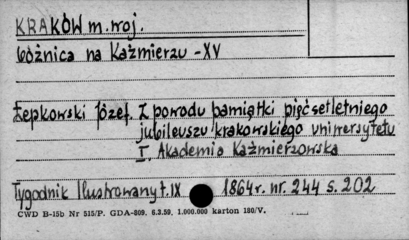 KRAKÓW m. woj.
bóżnica na Kaźmierzu - XV
Łepkowski Józef. Z powodu pamiątki pięćsetletniego
jubileuszu krakowskiego uniwersytetu
I. Akademia Kaźmierzowska
Tygodnik Ilustrowany t. IX 1864 r. nr. 244 s. 202
CWD B-15b Nr 515/P. GDA-809. 6.3.59. 1.000.000 karton 180/V.